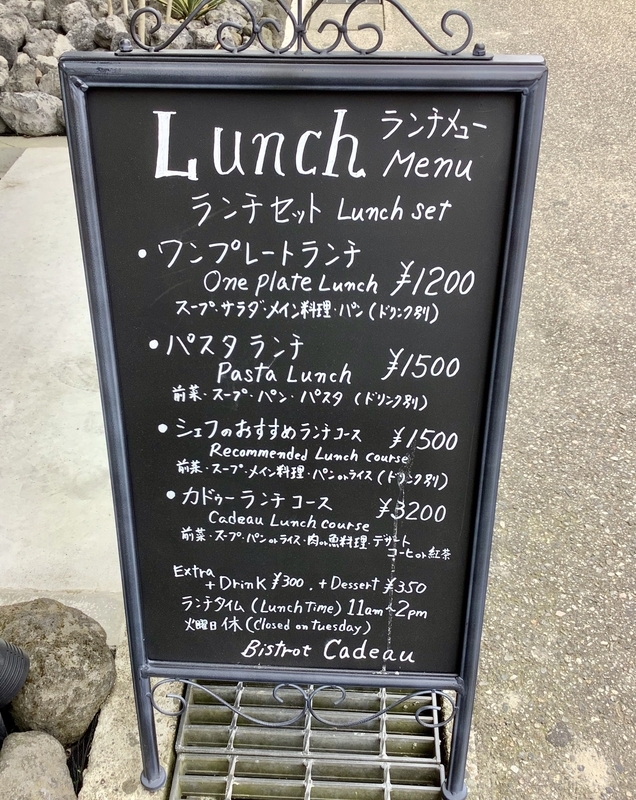 Lunch ランチメニュー
Menu
ランチセット Lunch set
• ワンプレートランチ
One Plate Lunch ¥1200
スープ・サラダ・メイン料理・パン (ドリンク別)
• パスタランチ
Pasta Lunch ¥1500
前菜・スープ・パン・パスタ (ドリンク別)
• シェフのおすすめランチコース ¥1500
Recommended Lunch course
前菜・スープ・メイン料理・パンorライス (ドリンク別)
• カドゥーランチコース ¥3200
Cadeau Lunch course
前菜・スープ・パンorライス・肉or魚料理・デザート
コーヒor紅茶
Extra
+ Drink ¥300. + Dessert ¥350
ランチタイム (Lunch time) 11am~2pm
火曜日 休 (Closed on tuesday)
Bistrot Cadeau